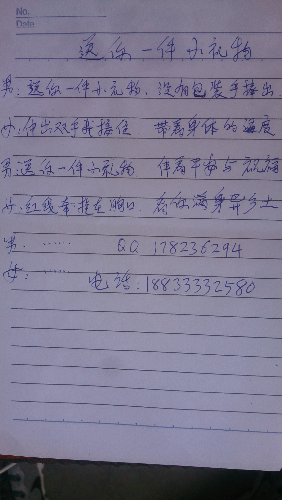 No.
Date
送你一件小礼物
男:送你一件小礼物,没有包装手捧出
女:伸出双手来接住 带着身体的温度
男:送你一件小礼物 伴着平安与祝福
女:红线牵挂在胸口 看你满身异乡土
男:…… QQ 178236294
女:…… 电话:18833332580